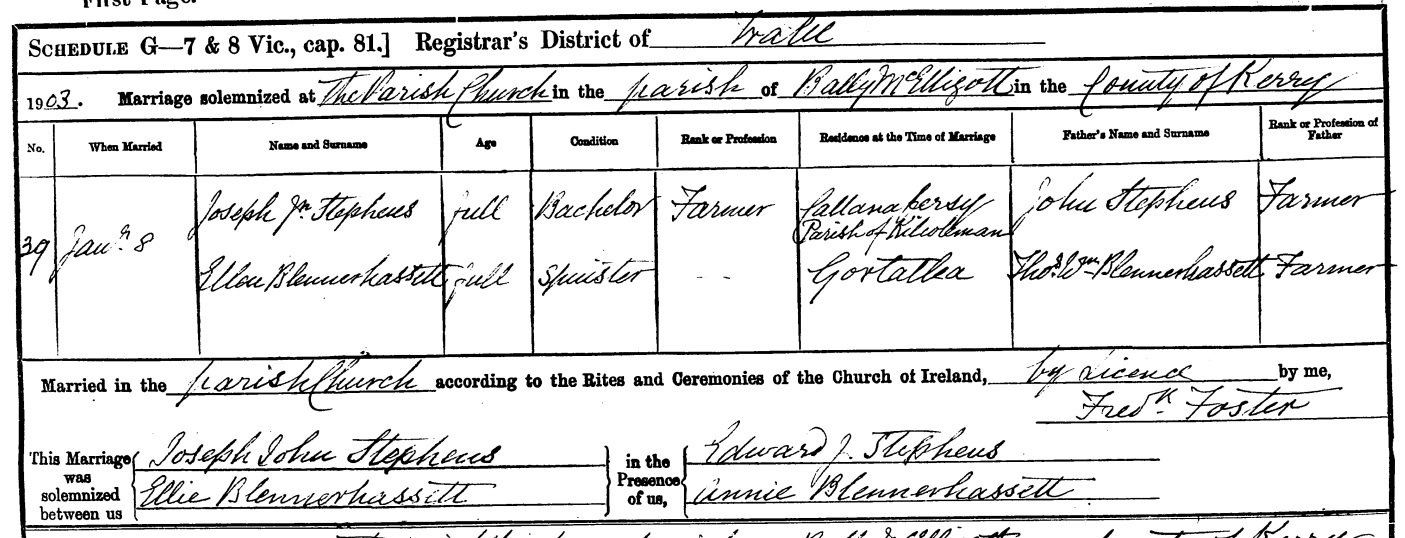 First Page.
SCHEDULE G—7 & 8 Vic., cap. 81.] Registrar's District of Tralee
1903. Marriage solemnized at The Parish Church in the parish of Ballymcelligott in the County of Kerry
No. When Married Name and Surname Age Condition Rank or Profession Residence at the Time of Marriage Father's Name and Surname Rank or Profession of Father
39 Jany 8 Joseph Jn Stephens full Bachelor Farmer Callanafersy Parish of Kilcoleman John Stephens Farmer
Ellen Blennerhassett full Spinster - - Gortatlea Thos Wm Blennerhassett Farmer
Married in the parish Church according to the Rites and Ceremonies of the Church of Ireland, by Licence by me,
Fredk Foster
This Marriage was solemnized between us
Joseph John Stephens
Ellie Blennerhassett
in the Presence of us,
Edward J. Stephens
Annie Blennerhassett